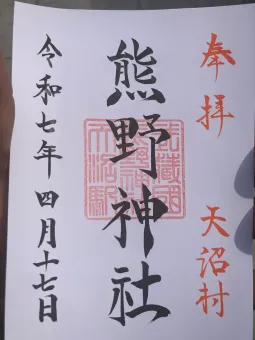 奉拝
天沼村
熊野神社
令和七年四月十七日